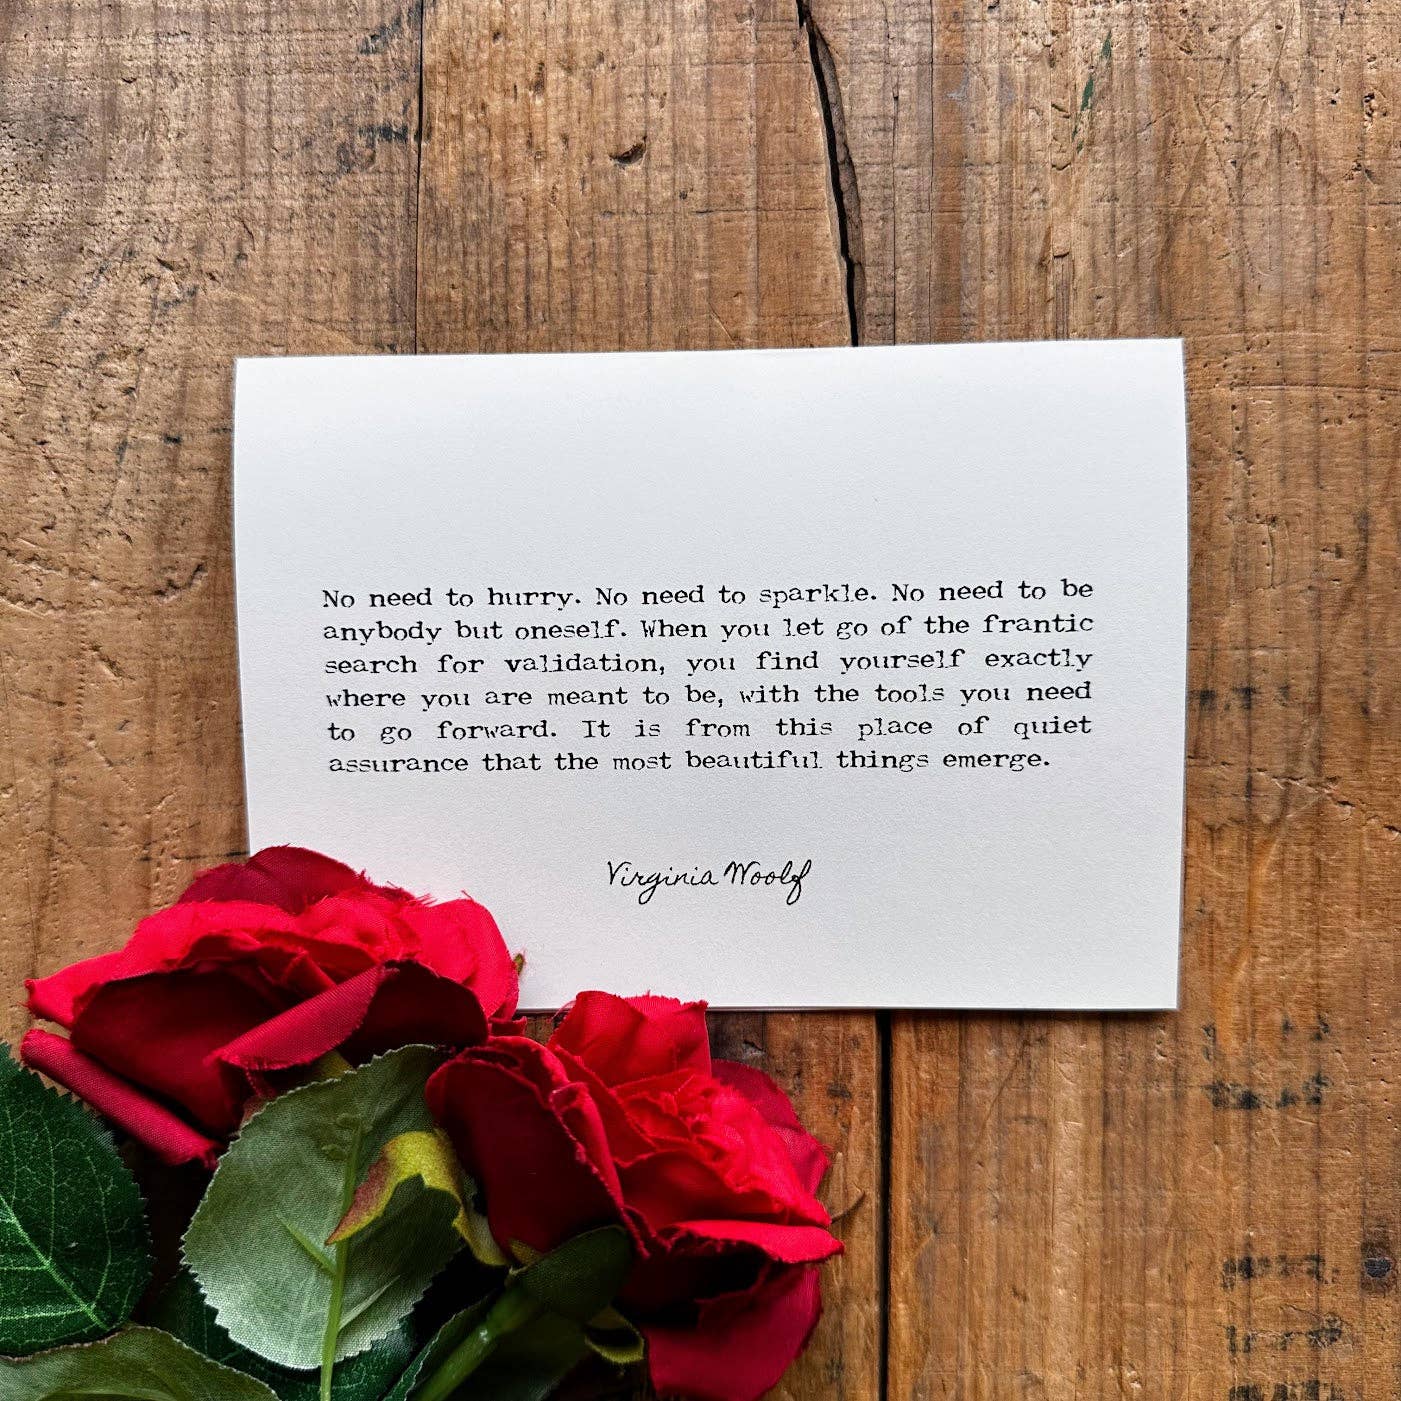 No need to hurry. No need to sparkle. No need to be
anybody but oneself. When you let go of the frantic
search for validation, you find yourself exactly
where you are meant to be, with the tools you need
to go forward. It is from this place of quiet
assurance that the most beautiful things emerge.
Virginia Woolf